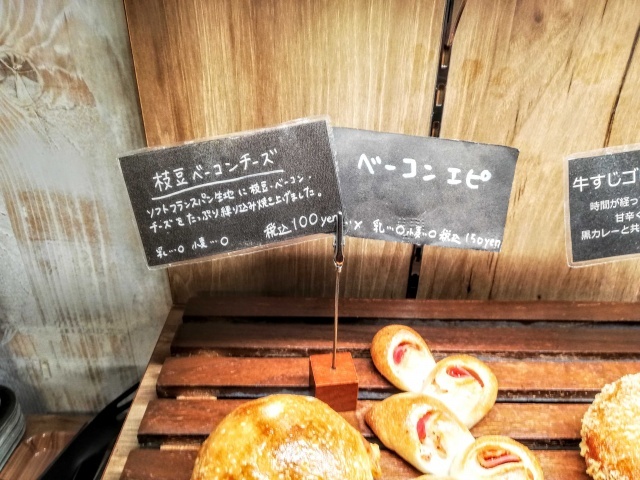 枝豆ベーコンチーズ
ソフトフランスパン生地に枝豆・ベーコン・
チーズをたっぷり練り込み焼き上げました。
税込100yen
乳…○ 小麦…○
ベーコンエピ
乳…○ 小麦…○ 税込150yen
牛すじゴ
時間が経っ
甘辛く
黒カレーと共